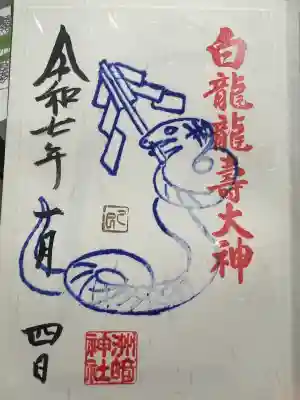 白龍龍壽大神
巳
洲崎神社
令和七年
十月
四日